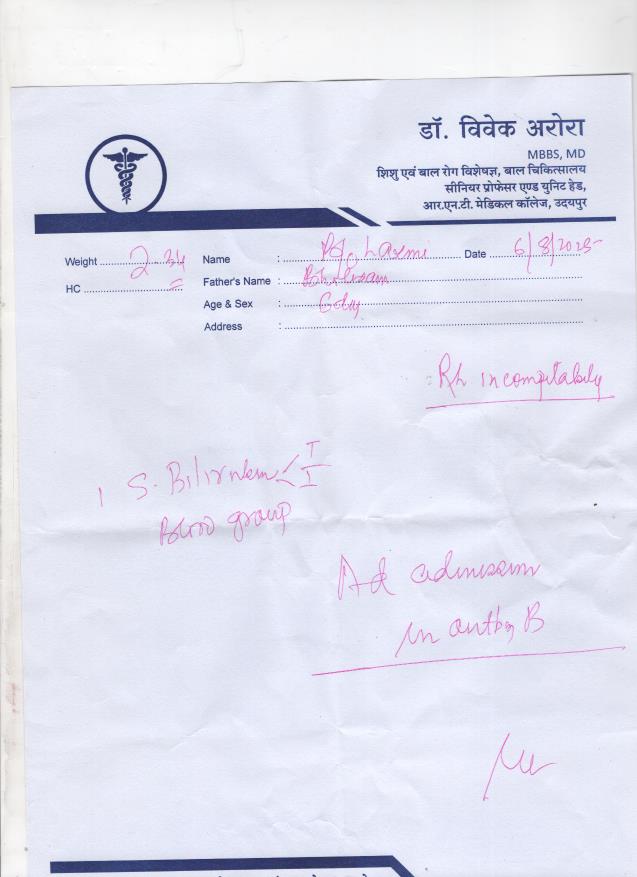 डॉ. विवेक अरोरा
MBBS, MD
शिशु एवं बाल रोग विशेषज्ञ, बाल चिकित्सालय
सीनियर प्रोफेसर एण्ड यूनिट हेड,
आर.एन.टी. मेडिकल कॉलेज, उदयपुर
Weight 2.34 Name : Laxmi Date 6/8/2025
HC Father's Name :
Age & Sex :
Address :
Rh incompitabily
1 S. Bilirubin < T
I
Blood group
Ad admission
in